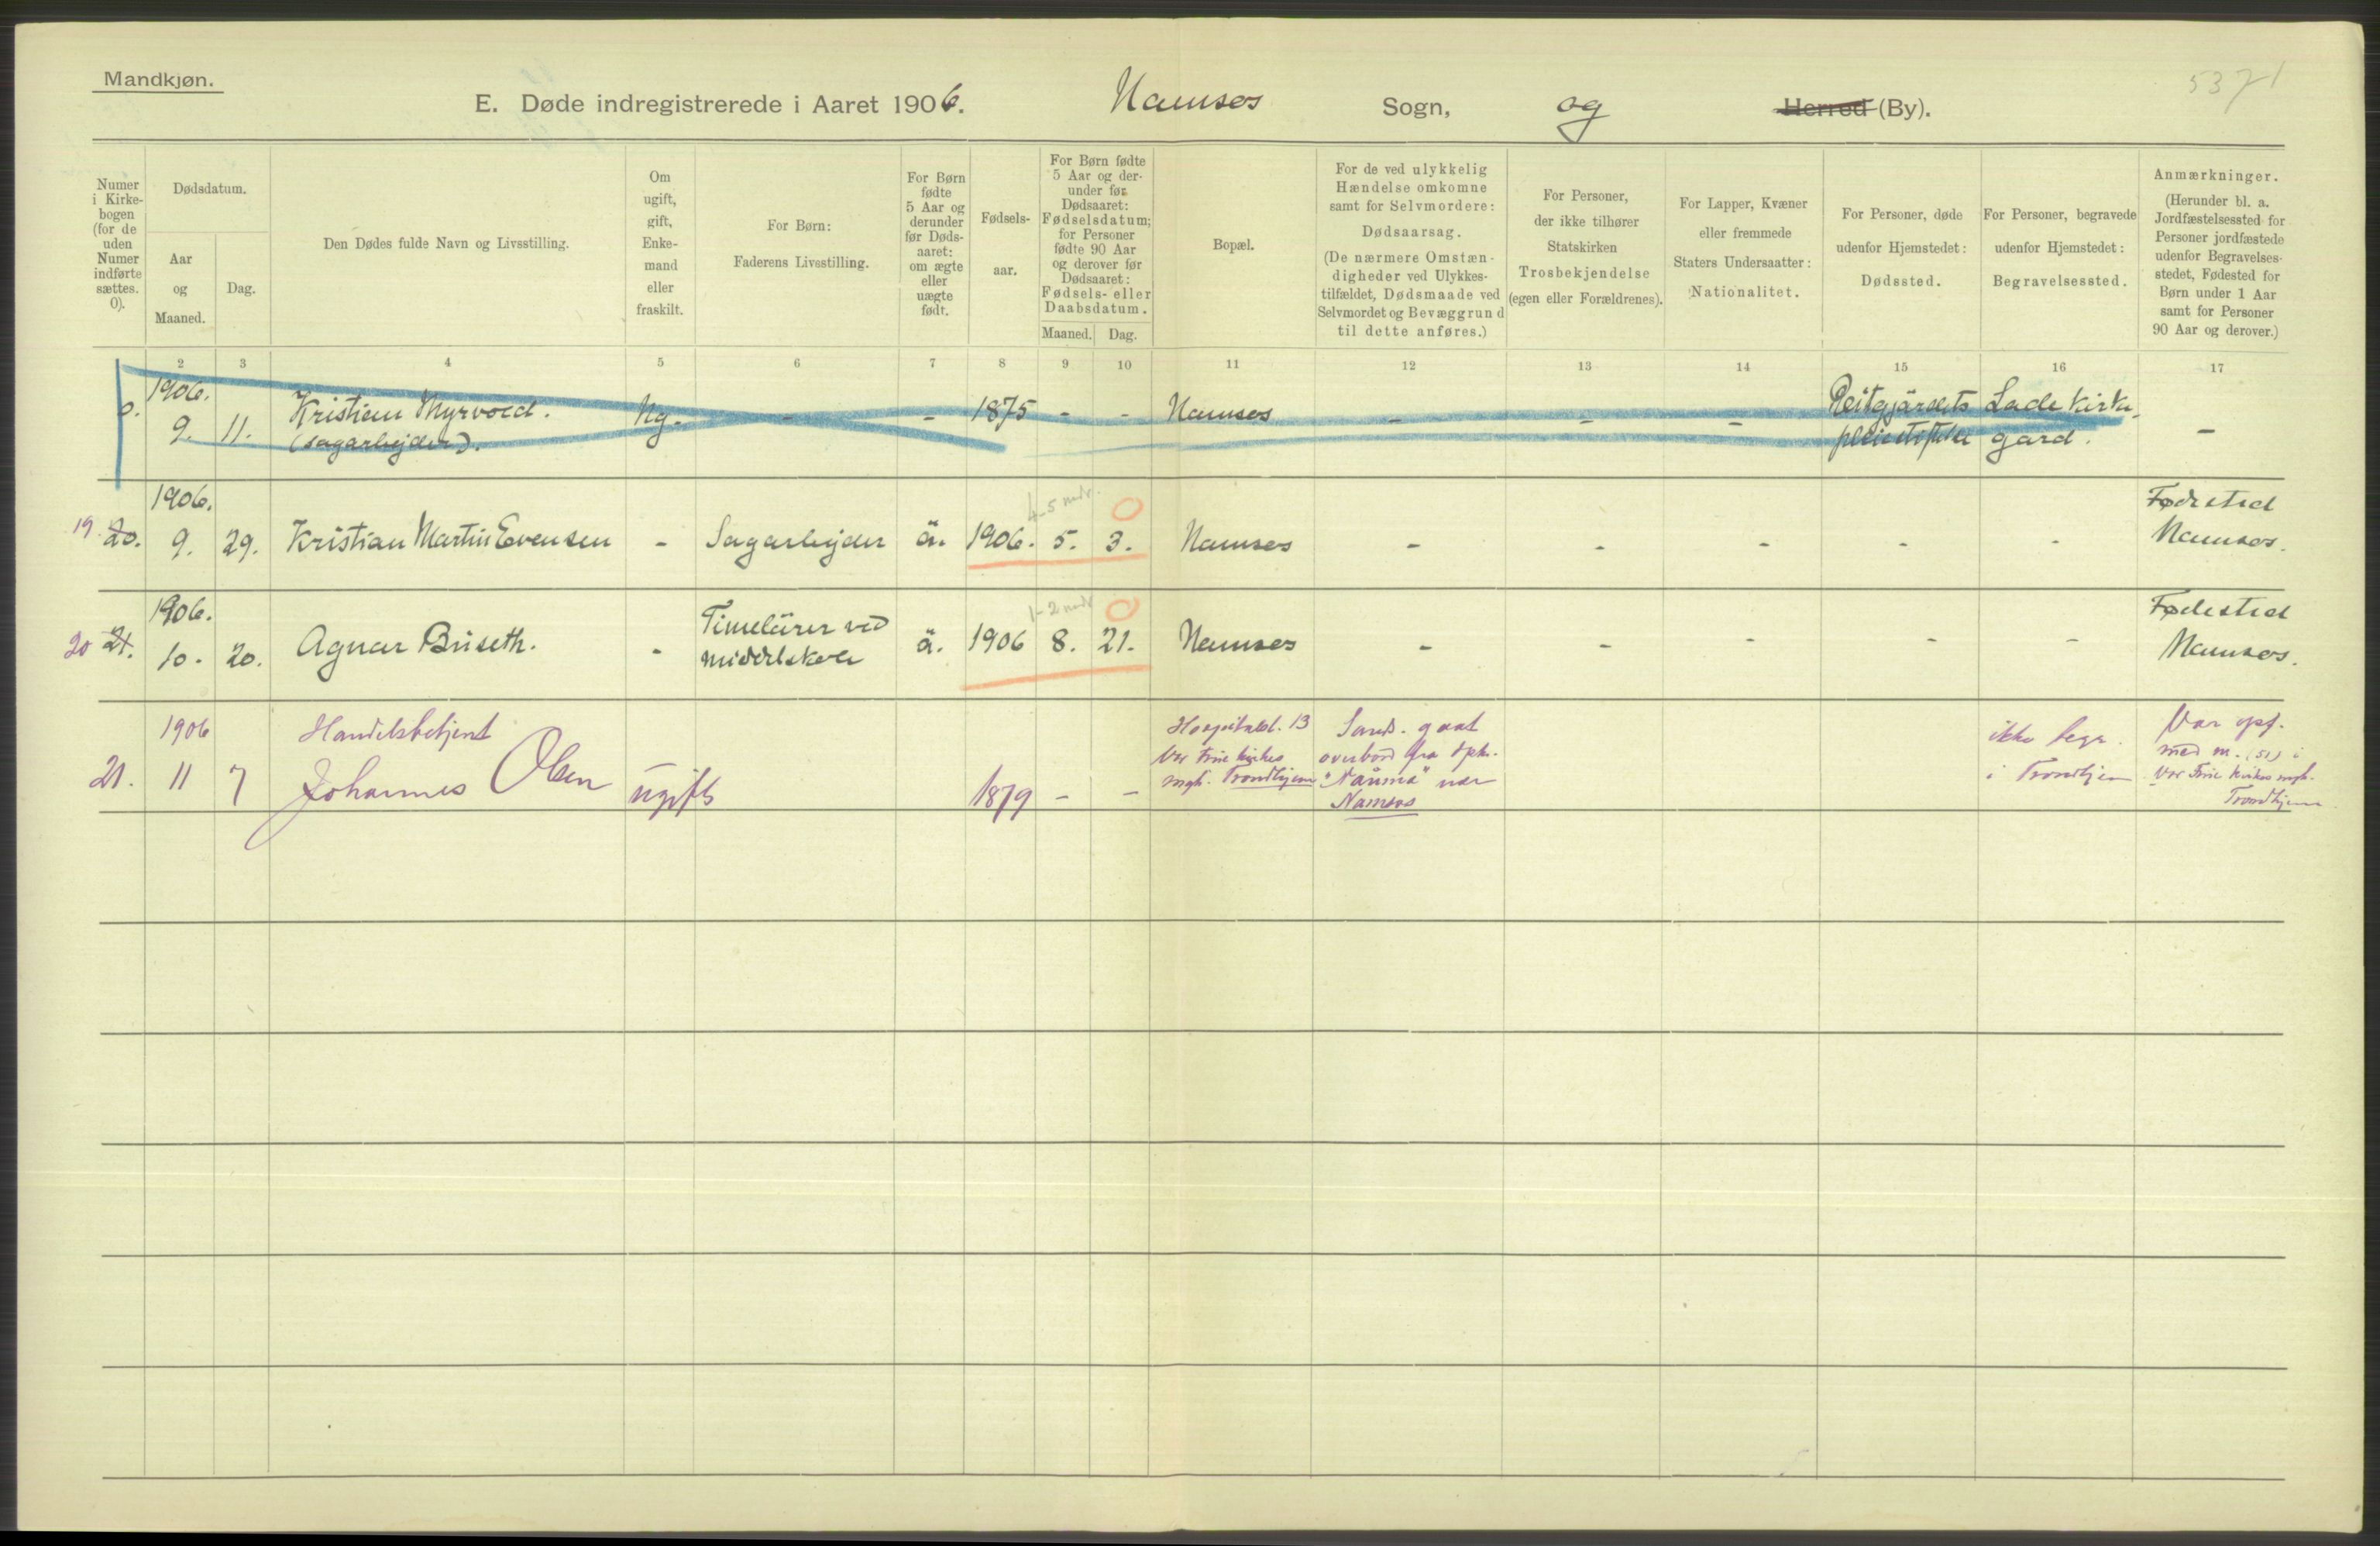 Mandkjøn.
5371
E. Døde indregistrerede i Aaret 1906. Namsos Sogn, og Herred (By).
Numer
i Kirke-
bogen
(for de
uden
Numer
indførte
sættes.
0).
Dødsdatum.
Aar
og
Maaned.
Dag.
Den Dødes fulde Navn og Livsstilling.
Om
ugift,
gift,
Enke-
mand
eller
fraskilt.
For Børn:
Faderens Livsstilling.
For Børn
fødte
5 Aar og
derunder
før Døds-
aaret:
om ægte
eller
uægte
født.
Fødsels-
aar.
For Børn fødte
5 Aar og der-
under før
Dødsaaret:
Fødselsdatum;
for Personer
fødte 90 Aar
og derover før
Dødsaaret:
Fødsels- eller
Daabsdatum.
Maaned. Dag.
Bopæl.
For de ved ulykkelig
Hændelse omkomne
samt for Selvmordere:
Dødsaarsag.
(De nærmere Omstæn-
digheder ved Ulykkes-
tilfældet, Dødsmaade ved
Selvmordet og Bevæggrund
til dette anføres.)
For Personer,
der ikke tilhører
Statskirken
Trosbekjendelse
(egen eller Forældrenes).
For Lapper, Kvæner
eller fremmede
Staters Undersaatter:
Nationalitet.
For Personer, døde
udenfor Hjemstedet:
Dødssted.
For Personer, begravede
udenfor Hjemstedet:
Begravelsessted.
Anmærkninger.
(Herunder bl. a.
Jordfæstelsessted for
Personer jordfæstede
udenfor Begravelses-
stedet, Fødested for
Børn under 1 Aar
samt for Personer
90 Aar og derover.)
2 3 4 5 6 7 8 9 10 11 12 13 14 15 16 17
1906.
0. 9. 11. Kristian Myrvold. Ug. - - 1875 - - Namsos - - - Reitgjärdets Lade kirke-
(sagarbejder). pleiestiftelse gård. -
1906. 4-5 mdr. 0 Fødested
19 20. 9. 29. Kristian Martin Evensen - Sagarbejder ä. 1906. 5. 3. Namsos - - - - - Namsos.
1906. Timelärer ved 1-2 mdr 0 Fødested
20 21. 10. 20. Agnar Büseth. - middelskole ä. 1906 8. 21. Namsos - - - - - Namsos.
1906 Handelsbetjent Hospitalsl. 13 Sands. gaat ikke begr. Var opf.
Vor Frue kirkes overbord fra med m. (51) i
21. 11 7 Johannes Olsen ugift 1879 - - mgh. Trondhjem "Nauma" nær i Trondhjem Vor Frue kirkes mgh.
Namsos Trondhjem